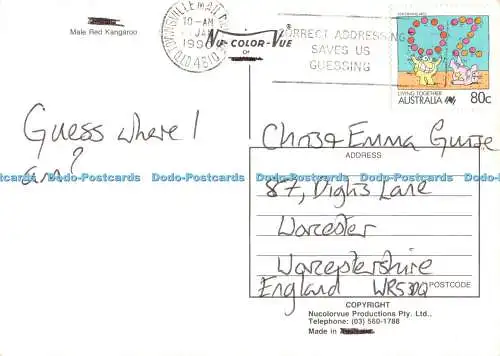 Male Red Kangaroo
TOWNSVILLE MAIL
10-AM
JAN
199
QLD 4810
NU-COLOR-VUE
OF
CORRECT ADDRESSING
SAVES US
GUESSING
LIVING TOGETHER
AUSTRALIA 80c
Guess where I
am?
Chris & Emma
ADDRESS
87, Lane
Worcester
Worcestershire
England WR5
POSTCODE
Dodo-Postcards Dodo-Postcards Dodo-Postcards Dodo-Postcards Dodo-Postcards
COPYRIGHT
Nucolorvue Productions Pty. Ltd..
Telephone: (03) 560-1788
Made in